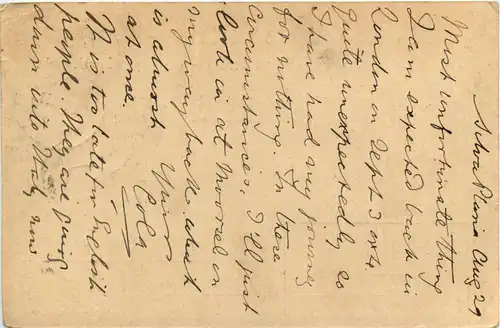 Silvaplana Aug 29
Most unfortunate thing
I am expected back in
London on Sept 3rd or 4
quite unexpectedly so
I have had my journey
for nothing. In these
circumstances, I'll just
look in at Moorsel on
my way back which
is almost
at once.
Yours
Cola
It is too late for English
people. They are going
down into Italy now